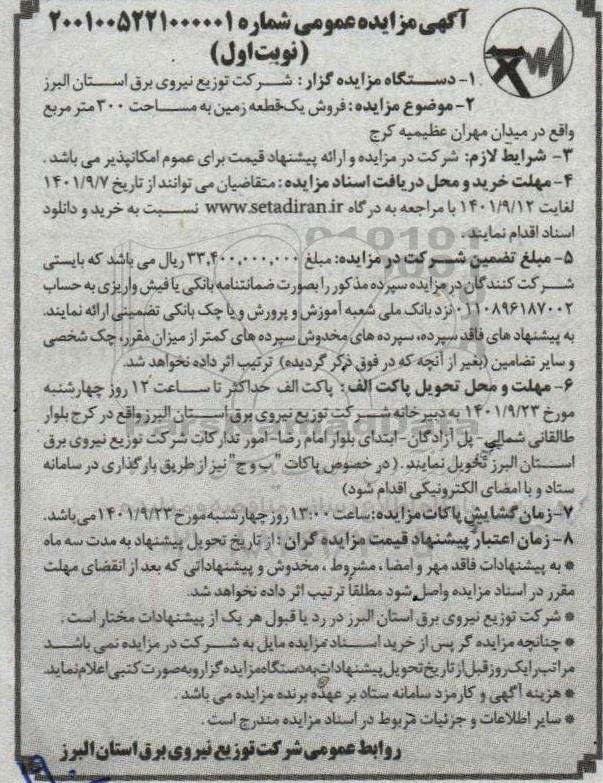 آگهی مزایده عمومی شماره ۲۰۰۱۰۰۵۲۲۱۰۰۰۰۰۱
(نوبت اول)
۱- دستگاه مزایده گزار: شرکت توزیع نیروی برق استان البرز
۲- موضوع مزایده: فروش یک قطعه زمین به مساحت ۳۰۰ متر مربع
واقع در میدان مهران عظیمیه کرج
۳- شرایط لازم: شرکت در مزایده و ارائه پیشنهاد قیمت برای عموم امکانپذیر می باشد.
۴- مهلت خرید و محل دریافت اسناد مزایده: متقاضیان می توانند از تاریخ ۱۴۰۱/۹/۷
لغایت ۱۴۰۱/۹/۱۲ با مراجعه به درگاه www.setadiran.ir نسبت به خرید و دانلود
اسناد اقدام نمایند.
۵- مبلغ تضمین شرکت در مزایده: مبلغ ۳۳,۴۰۰,۰۰۰,۰۰۰ ریال می باشد که بایستی
شرکت کنندگان در مزایده سپرده مذکور را بصورت ضمانتنامه بانکی یا فیش واریزی به حساب
۰۱۱۰۸۹۶۱۸۷۰۰۲ نزد بانک ملی شعبه آموزش و پرورش و یا چک بانکی تضمینی ارائه نمایند.
به پیشنهاد های فاقد سپرده، سپرده های مخدوش سپرده های کمتر از میزان مقرر، چک شخصی
و سایر تضامین (بغیر از آنچه که در فوق ذکر گردیده) ترتیب اثر داده نخواهد شد.
۶- مهلت و محل تحویل پاکت الف: پاکت الف حداکثر تا ساعت ۱۲ روز چهارشنبه
مورخ ۱۴۰۱/۹/۲۳ به دبیرخانه شرکت توزیع نیروی برق استان البرز واقع در کرج بلوار
طالقانی شمالی- پل آزادگان- ابتدای بلوار امام رضا- امور تدارکات شرکت توزیع نیروی برق
استان البرز تحویل نمایند. (در خصوص پاکات "ب و ج" نیز از طریق بارگذاری در سامانه
ستاد و با امضای الکترونیکی اقدام شود)
۷- زمان گشایش پاکات مزایده: ساعت ۱۳:۰۰ روز چهارشنبه مورخ ۱۴۰۱/۹/۲۳ می باشد.
۸- زمان اعتبار پیشنهاد قیمت مزایده گران: از تاریخ تحویل پیشنهاد به مدت سه ماه
* به پیشنهادات فاقد مهر و امضا، مشروط، مخدوش و پیشنهاداتی که بعد از انقضای مهلت
مقرر در اسناد مزایده واصل شود مطلقا ترتیب اثر داده نخواهد شد.
* شرکت توزیع نیروی برق استان البرز در رد یا قبول هر یک از پیشنهادات مختار است.
* چنانچه مزایده گر پس از خرید اسناد مزایده مایل به شرکت در مزایده نمی باشد
مراتب را یک روز قبل از تاریخ تحویل پیشنهادات به دستگاه مزایده گزار و به صورت کتبی اعلام نماید.
* هزینه آگهی و کارمزد سامانه ستاد بر عهده برنده مزایده می باشد.
* سایر اطلاعات و جزئیات مربوط در اسناد مزایده مندرج است.
روابط عمومی شرکت توزیع نیروی برق استان البرز